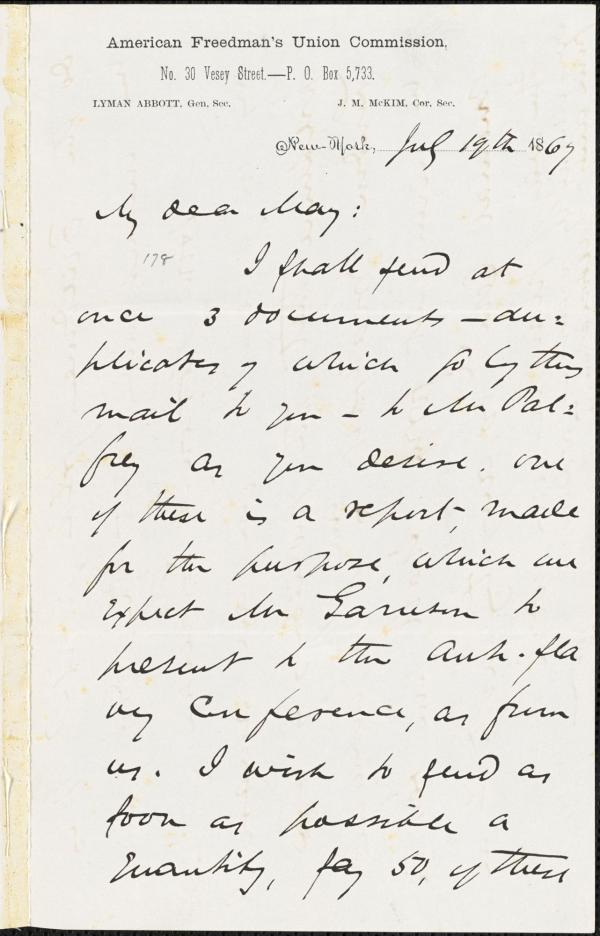 American Freedman's Union Commission,
No. 30 Vesey Street.—P. O. Box 5,733.
LYMAN ABBOTT, Gen. Sec. J. M. McKIM, Cor. Sec.
New-York, July 19th 1867
My dear May:
178
I shall send at
once 3 documents — du=
plicates of which go by this
mail to you — to Mr Pal=
frey as you desire. one
of these is a report, made
for the purpose, which we
expect Mr Garrison to
present to the Anti-sla
very Conference, as from
us. I wish to send as
soon as possible a
quantity, say 50, of these